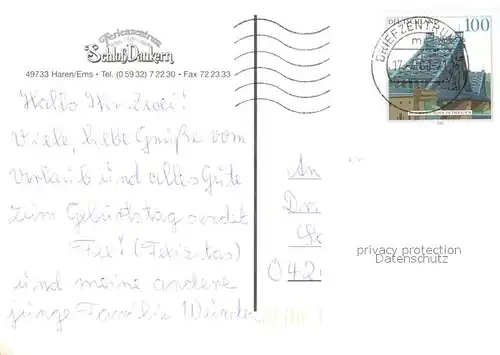 Ferienzentrum
Schloß Dankern
49733 Haren/Ems • Tel. (0 59 32) 7 22 30 • Fax 72 23 33
Hallo Ihr zwei!
Viele, liebe Grüße vom
Urlaub und alles Gute
zum Geburtstag
Fee! (Felizitas)
und meine andere
junge Familie
DEUTSCHLAND 100
BRIEFZENTRUM
An
Dr.
042
privacy protection
Datenschutz